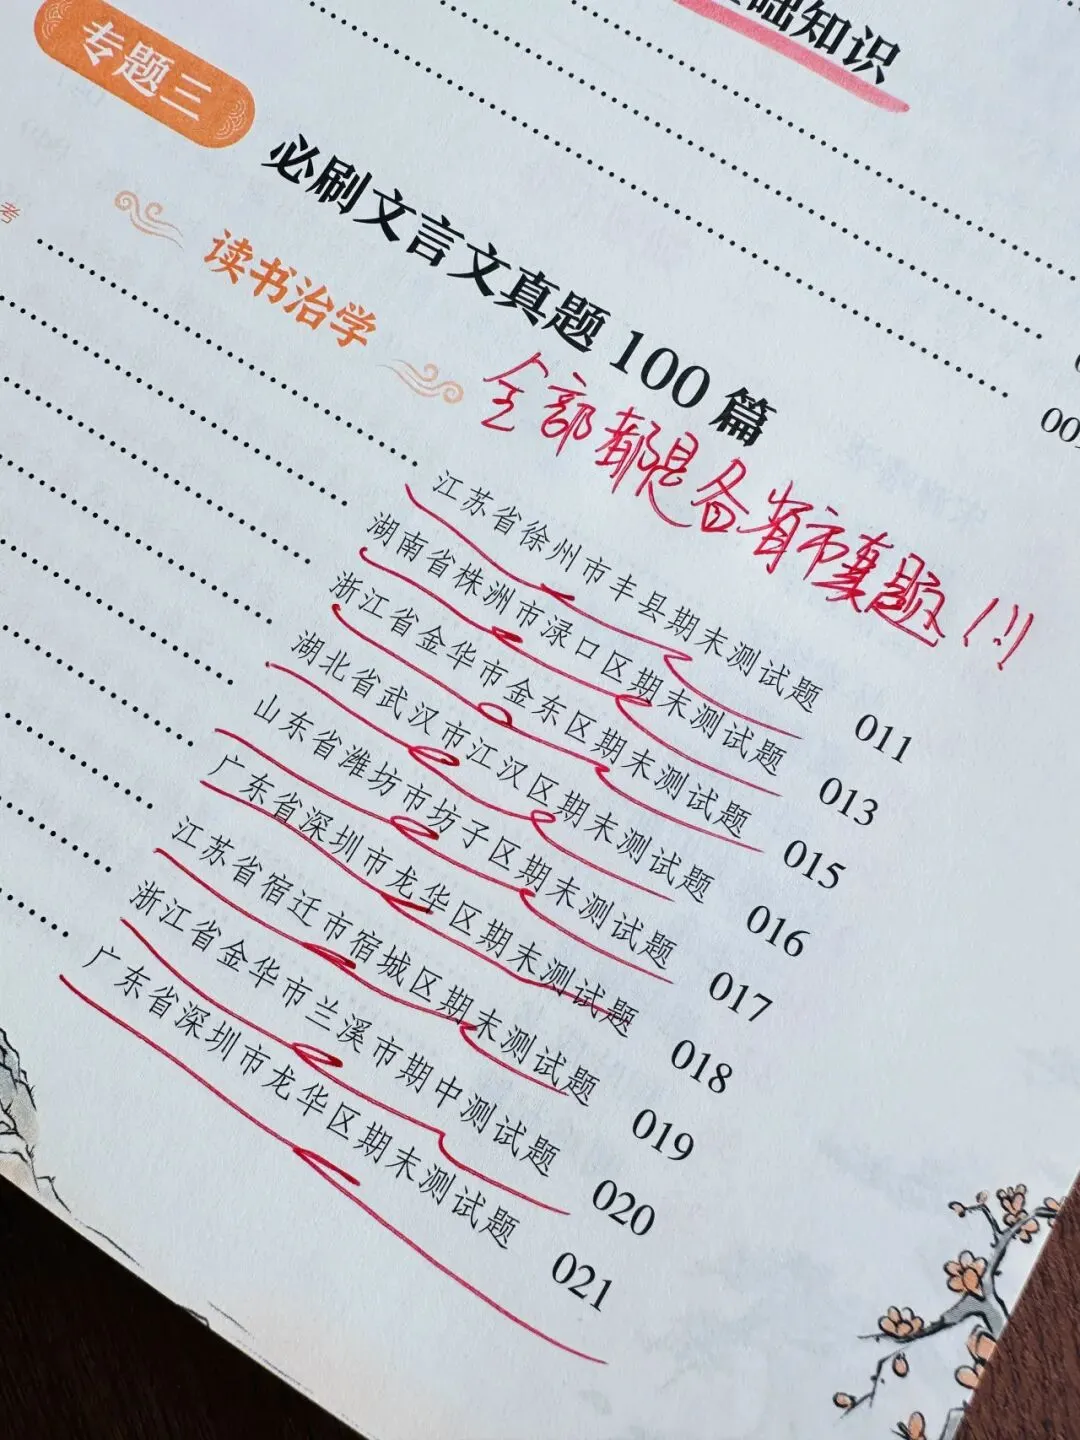 础知识
专题三
必刷文言文真题100篇
考
读书治学
全部都是各省市真题!!!
江苏省徐州市丰县期末测试题 011
湖南省株洲市渌口区期末测试题 013
浙江省金华市金东区期末测试题 015
湖北省武汉市江汉区期末测试题 016
山东省潍坊市坊子区期末测试题 017
广东省深圳市龙华区期末测试题 018
江苏省宿迁市宿城区期末测试题 019
浙江省金华市兰溪市期中测试题 020
广东省深圳市龙华区期末测试题 021